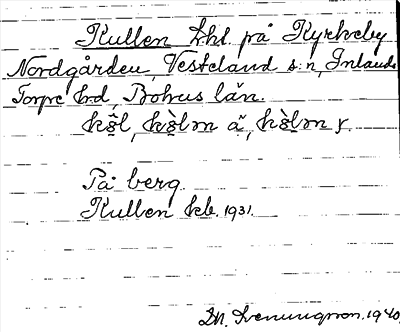 Kullen lhl. på Kyrkeby
Nordgården, Vesteland s:n, Inlands
Torpe hrd, Bohus län.
På berg
Kullen kb. 1931.
D.M. Svenungsson. 1940.